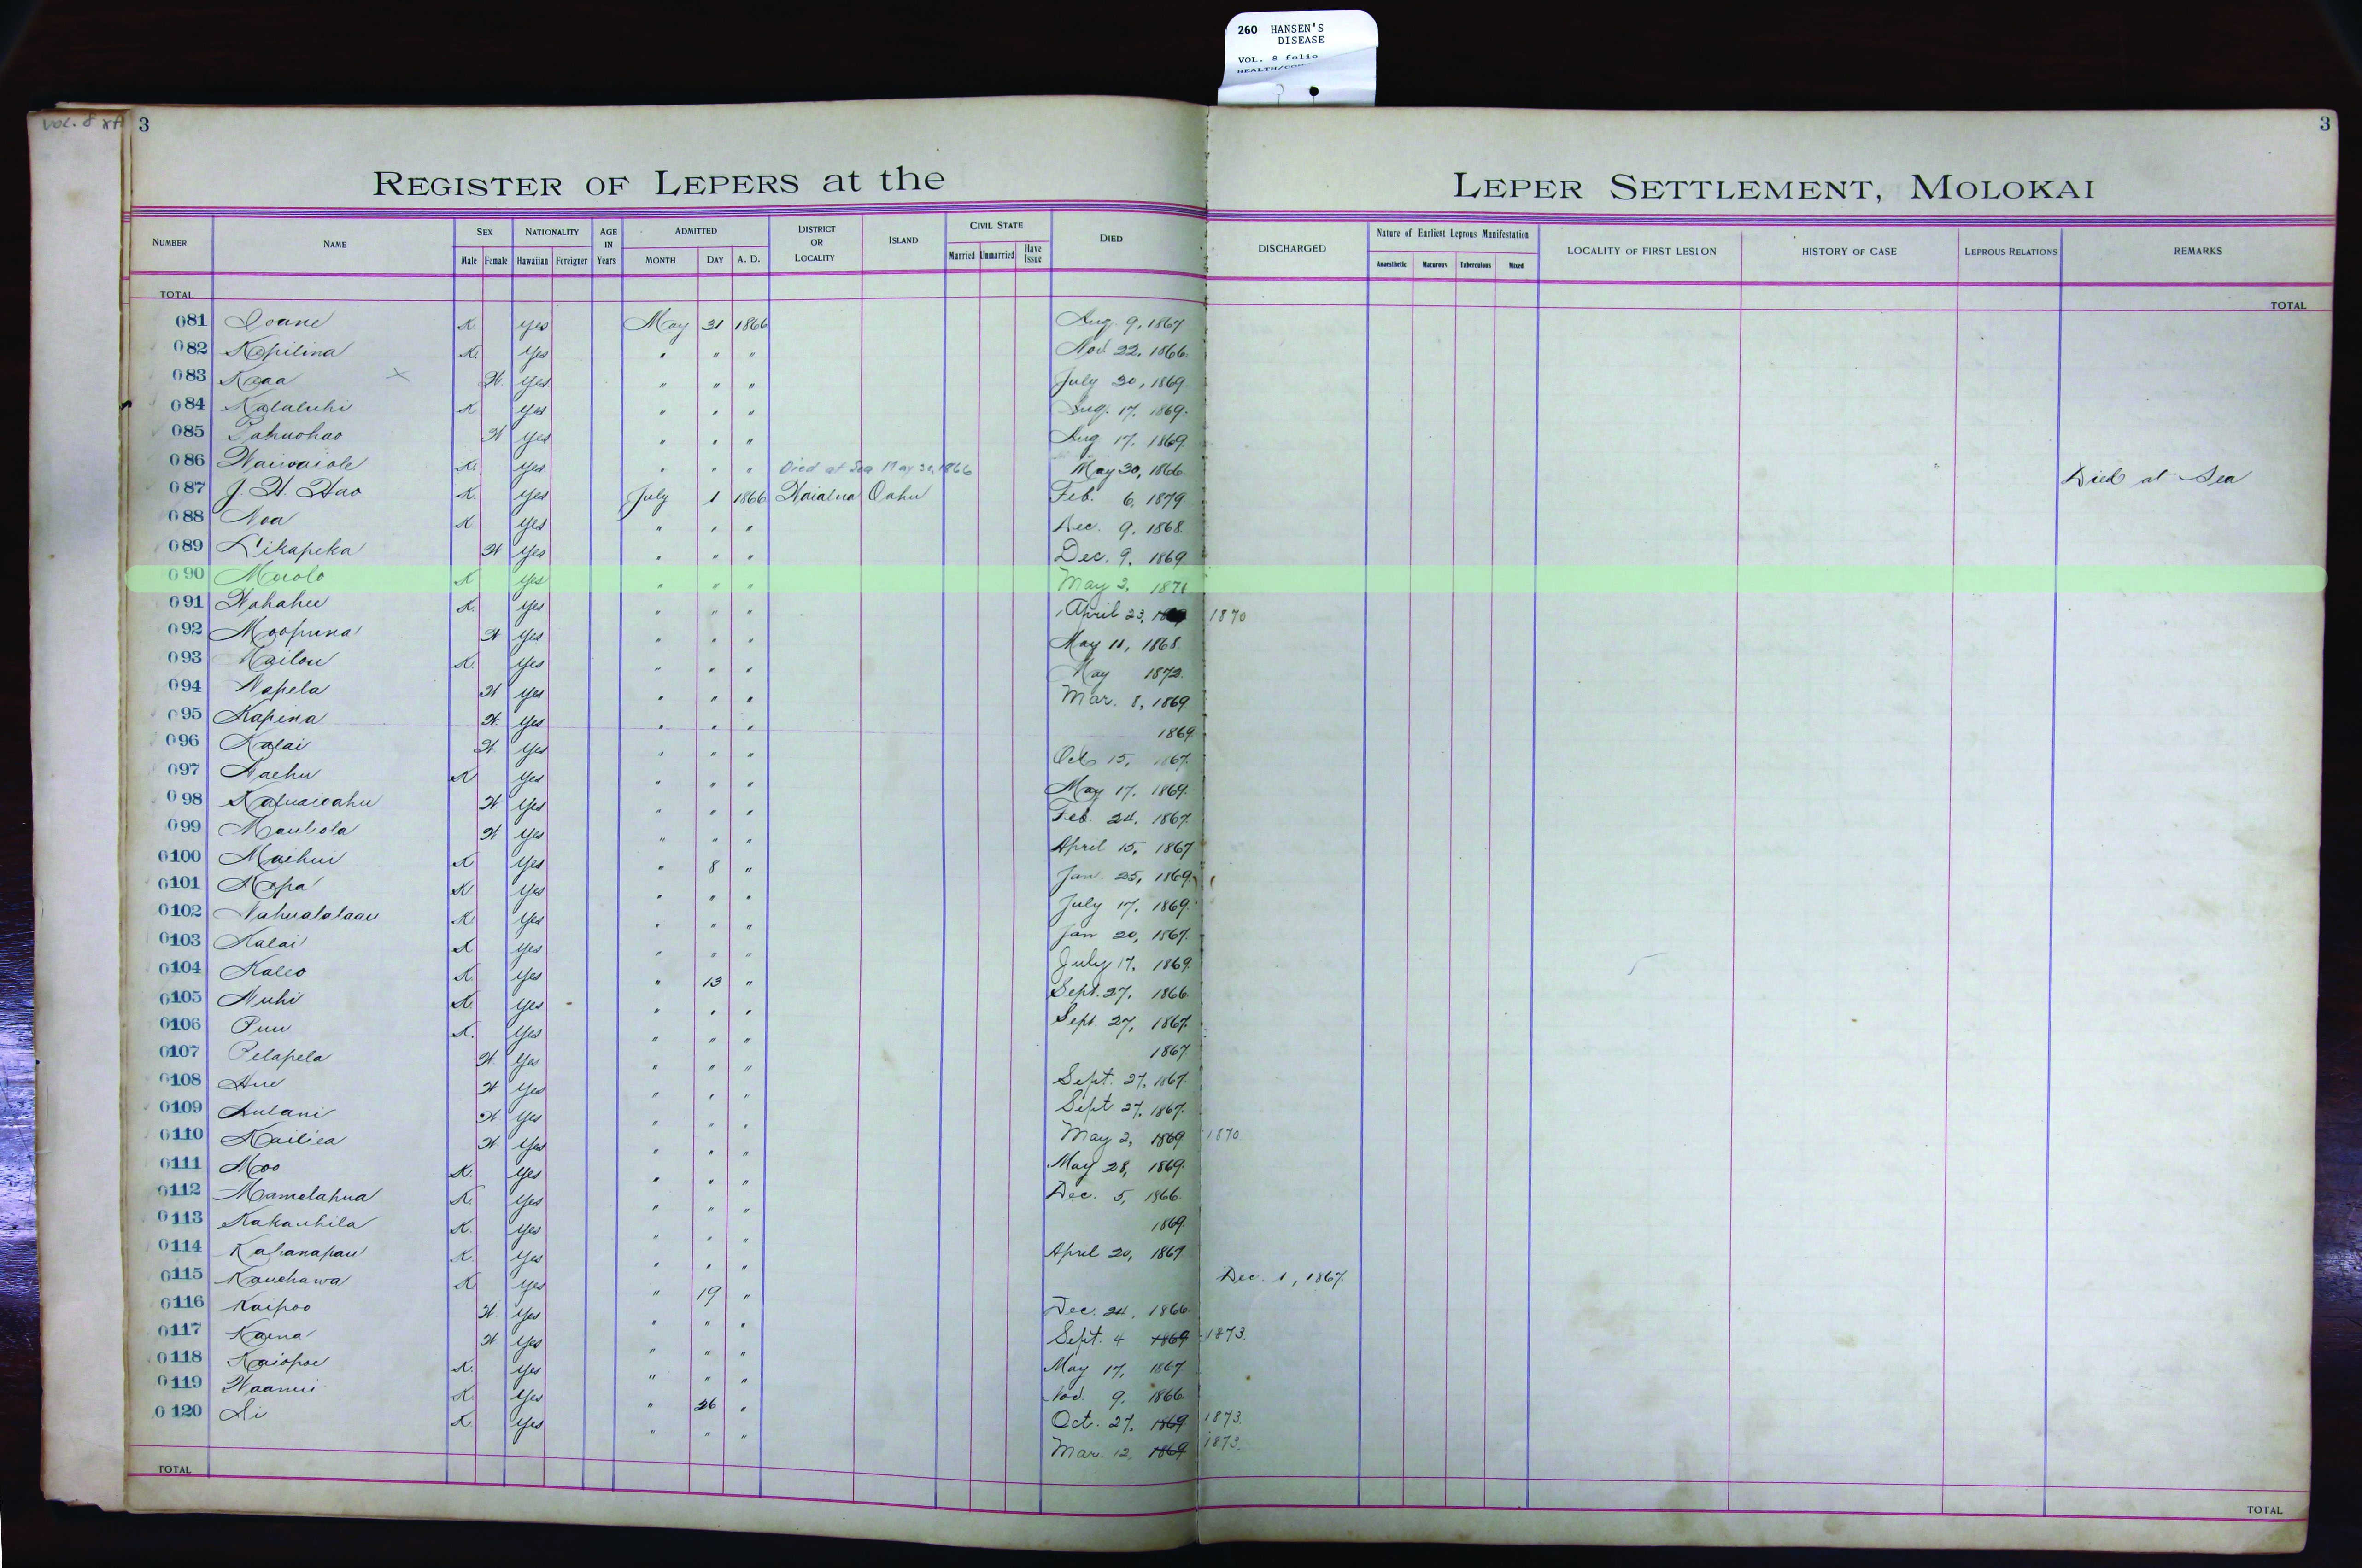 260 HANSEN'S
DISEASE
VOL. 8 folio
VOL. 8
3
3
REGISTER OF LEPERS at the LEPER SETTLEMENT, MOLOKAI
NUMBER NAME SEX NATIONALITY AGE IN Years ADMITTED DISTRICT OR LOCALITY ISLAND CIVIL STATE DIED DISCHARGED Nature of Earliest Leprous Manifestation LOCALITY OF FIRST LESION HISTORY OF CASE LEPROUS RELATIONS REMARKS
Male Female Hawaiian Foreigner MONTH DAY A. D. Married Unmarried Have Issue Anaesthetic Macurous Tuberculous Mixed
TOTAL TOTAL
081 Ioane K. Yes May 31 1866 Aug. 9, 1867
082 Kopilina K. Yes " " " Nov. 22, 1866.
083 Kaaa X W. Yes " " " July 30, 1869.
084 Kalaluhi K Yes " " " Aug. 17, 1869.
085 Pahuohao W Yes " " " Aug 17, 1869.
086 Waiwaiole K. Yes " " " Died at Sea May 30, 1866 May 30, 1866. Died at Sea
087 J. H. Hao K. Yes July 1 1866 Waialua Oahu Feb. 6, 1879
088 Noa K. Yes " " " Dec. 9, 1868.
089 Likapeka W Yes " " " Dec. 9, 1869
090 Muolo K Yes " " " May 2, 1871
091 Nahahu K. Yes " " " April 23, 1870
092 Moopuna W Yes " " " May 11, 1868.
093 Kailou K. Yes " " " May 1872.
094 Napela W Yes " " " Mar. 8, 1869
095 Kapena W. Yes " " " 1869.
096 Kalai W. Yes " " " Oct. 15, 1867.
097 Naehu K Yes " " " May 17, 1869.
098 Kapuaioahu W Yes " " " Feb. 24, 1867.
099 Mauliola W Yes " " " April 15, 1867
0100 Maihui K Yes " 8 " Jan. 25, 1869.
0101 Mopa K Yes " " " July 17, 1869.
0102 Nahualalaau K. Yes " " " Jan 20, 1867.
0103 Kalai K Yes " " " July 17, 1869.
0104 Kaleo K. Yes " 13 " Sept. 27, 1866.
0105 Nuhi K. Yes " " " Sept. 27, 1867.
0106 Puu K. Yes " " " 1867
0107 Pelapela W Yes " " " Sept. 27, 1867.
0108 Hue W Yes " " " Sept 27, 1867.
0109 Aulani W. Yes " " " May 2, 1869 1870.
0110 Kailiea W. Yes " " " May 28, 1869.
0111 Moo K. Yes " " " Dec. 5, 1866.
0112 Mamelahua K. Yes " " " 1869.
0113 Kakauhila K. Yes " " " April 20, 1867
0114 Kahanapau K. Yes " " " Dec. 1, 1867.
0115 Kauehawa K. Yes " 19 " Dec. 24, 1866.
0116 Kaipoo W. Yes " " " Sept. 4 1869 1873.
0117 Kaena W Yes " " " May 17, 1867
0118 Kaiopoe K. Yes " " " Nov. 9, 1866.
0119 Waanui K. Yes " 26 " Oct. 27, 1869 1873.
0120 Li K. Yes " " " Mar. 12, 1869 1873.
TOTAL TOTAL